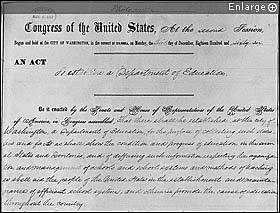 Enlarge
Congress of the United States, At the second Session,
Begun and held at the CITY OF WASHINGTON, in the DISTRICT OF COLUMBIA, on Monday, the day of December, Eighteen Hundred and Sixty-six
AN ACT
To establish a Department of Education.
Be it enacted by the Senate and House of Representatives of the United States
of America, in Congress assembled, That there shall be established, at the city of
Washington, a Department of Education, for the purpose of collecting such statis-
tics and facts as shall show the condition and progress of education in the several
States and Territories, and of diffusing such information respecting the organiza-
tion and management of schools and school systems, and methods of teaching,
as shall aid the people of the United States in the establishment and mainte-
nance of efficient school systems, and otherwise promote the cause of education
throughout the country.